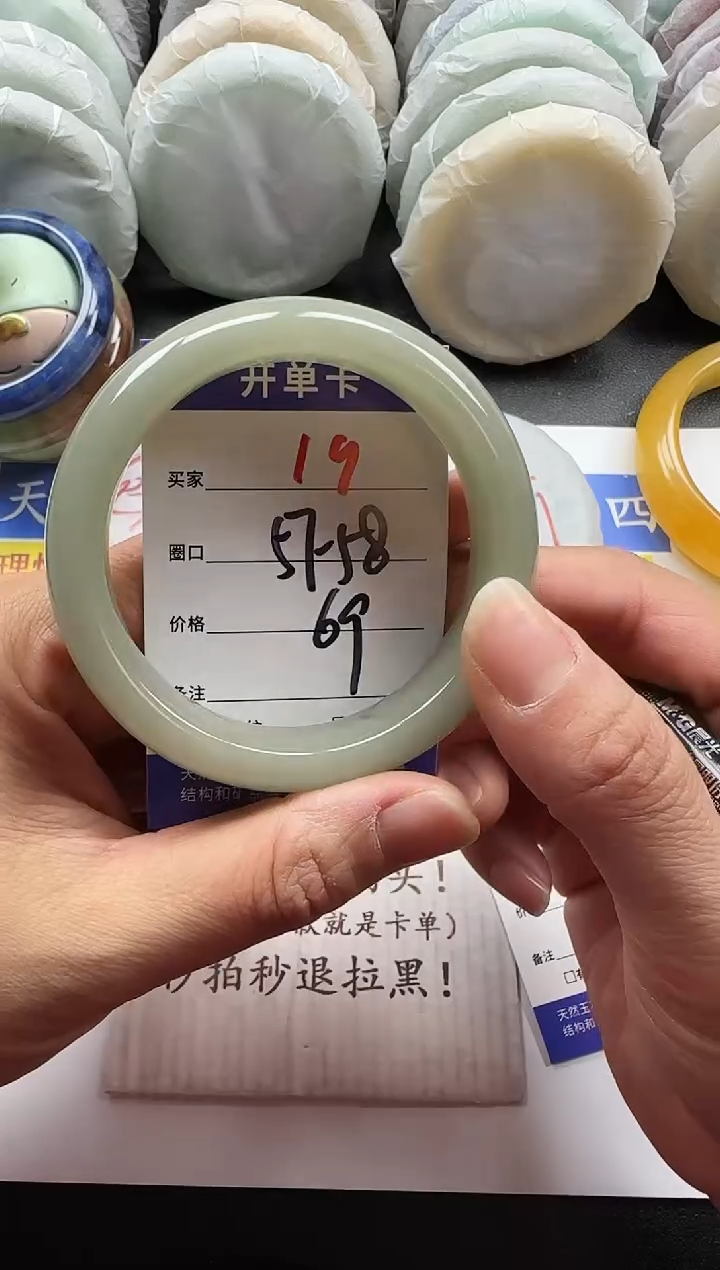 开单卡
买家 19
圈口 57-58
价格 69
备注
天
四
结构和
头！
款就是卡单）
秒拍秒退拉黑！
备注
天然玉
结构和
M&G 晨光